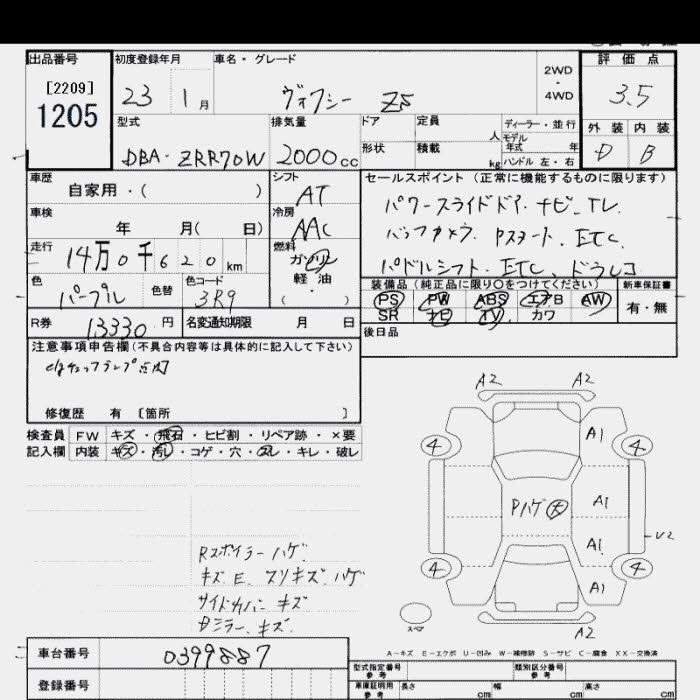 出品番号 初度登録年月 車名・グレード 評価点
[2209] 23 1月 ヴォクシー ZS 2WD・4WD 3.5
1205
外装 内装
D B
型式 排気量 ドア 定員 人 ディーラー・並行
モデル
年式 年
DBA-ZRR70W 2000cc 形状 積載 kg ハンドル 左・右
車歴 自家用・( ) シフト AT
セールスポイント (正常に機能するものに限ります)
パワースライドドア. ナビ. TV.
車検 年 月( 日) 冷房 AAC
バックカメラ. Pスタート. ETC.
走行 14万0千620km 燃料 ガソリン
軽油
( )
パドルシフト. ETC、ドラレコ
色 パープル 色替 色コード 3R9
装備品 (純正品に限り○をつけてください) 新車保証書
PS PW ABS エアB AW
SR ナビ TV カワ
有・無
R券 13330円 名変通知期限 月 日
後日品
注意事項申告欄 (不具合内容等は具体的に記入して下さい)
修復歴 有 [箇所 ]
検査員 FW キズ・飛石・ヒビ割・リペア跡・×要
記入欄 内装 キズ・汚レ・コゲ・穴・スレ・キレ・破レ
A2 A2
A1
4 4
Pハゲ 大 A1
A1 U2
4 4
A1
スペア
A2
Rスポイラーハゲ.
キズ E. スリキズ. ハゲ
サイドカバー キズ
Dミラー. キズ.
A-キズ E-エクボ U-凹み W-補修跡 S-サビ C-腐食 XX-交換済
車台番号 0399887
型式指定番号
参考
類別区分番号
参考
登録番号
車庫証明用
参考
長さ cm 幅 cm 高さ cm